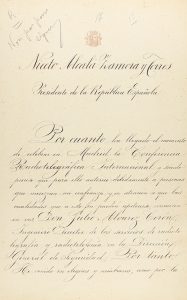 Niceto Alcalá Zamora y Torres
Presidente de la República Española
Por cuanto ha llegado el momento
de celebrar en Madrid la Conferencia
Radiotelegráfica Internacional y siendo
preciso que para ello autorice debidamente a personas
que merezcan mi confianza, y en atención a que las
en vos Don Julio
Ingeniero Director de los servicios de radiote
legrafía y radiotelefonía en la Dirección
General de Seguridad, Por tanto
He venido en elegiros y nombraros, como por la